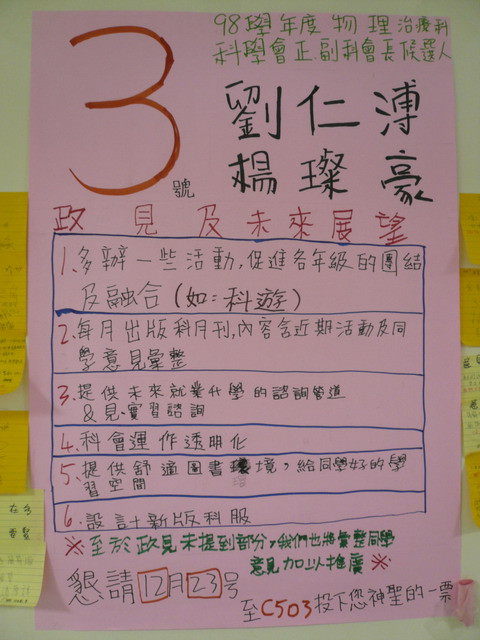 3號
98學年度物理治療科
科學會正.副科會長候選人
劉仁溥
楊璨豪
政見及未來展望
1.多辦一些活動,促進各年級的團結
及融合(如:科遊)
2.每月出版科月刊,內容含近期活動及同
學意見彙整
3.提供未來就業升學的諮詢管道
&見.實習諮詢
4.科會運作透明化
5.提供舒適圖書環境,給同學好的學
習空間
6.設計新版科服
※至於政見未提到部分,我們也將彙整同學
意見加以推廣※
懇請12月23號
至C503投下您神聖的一票